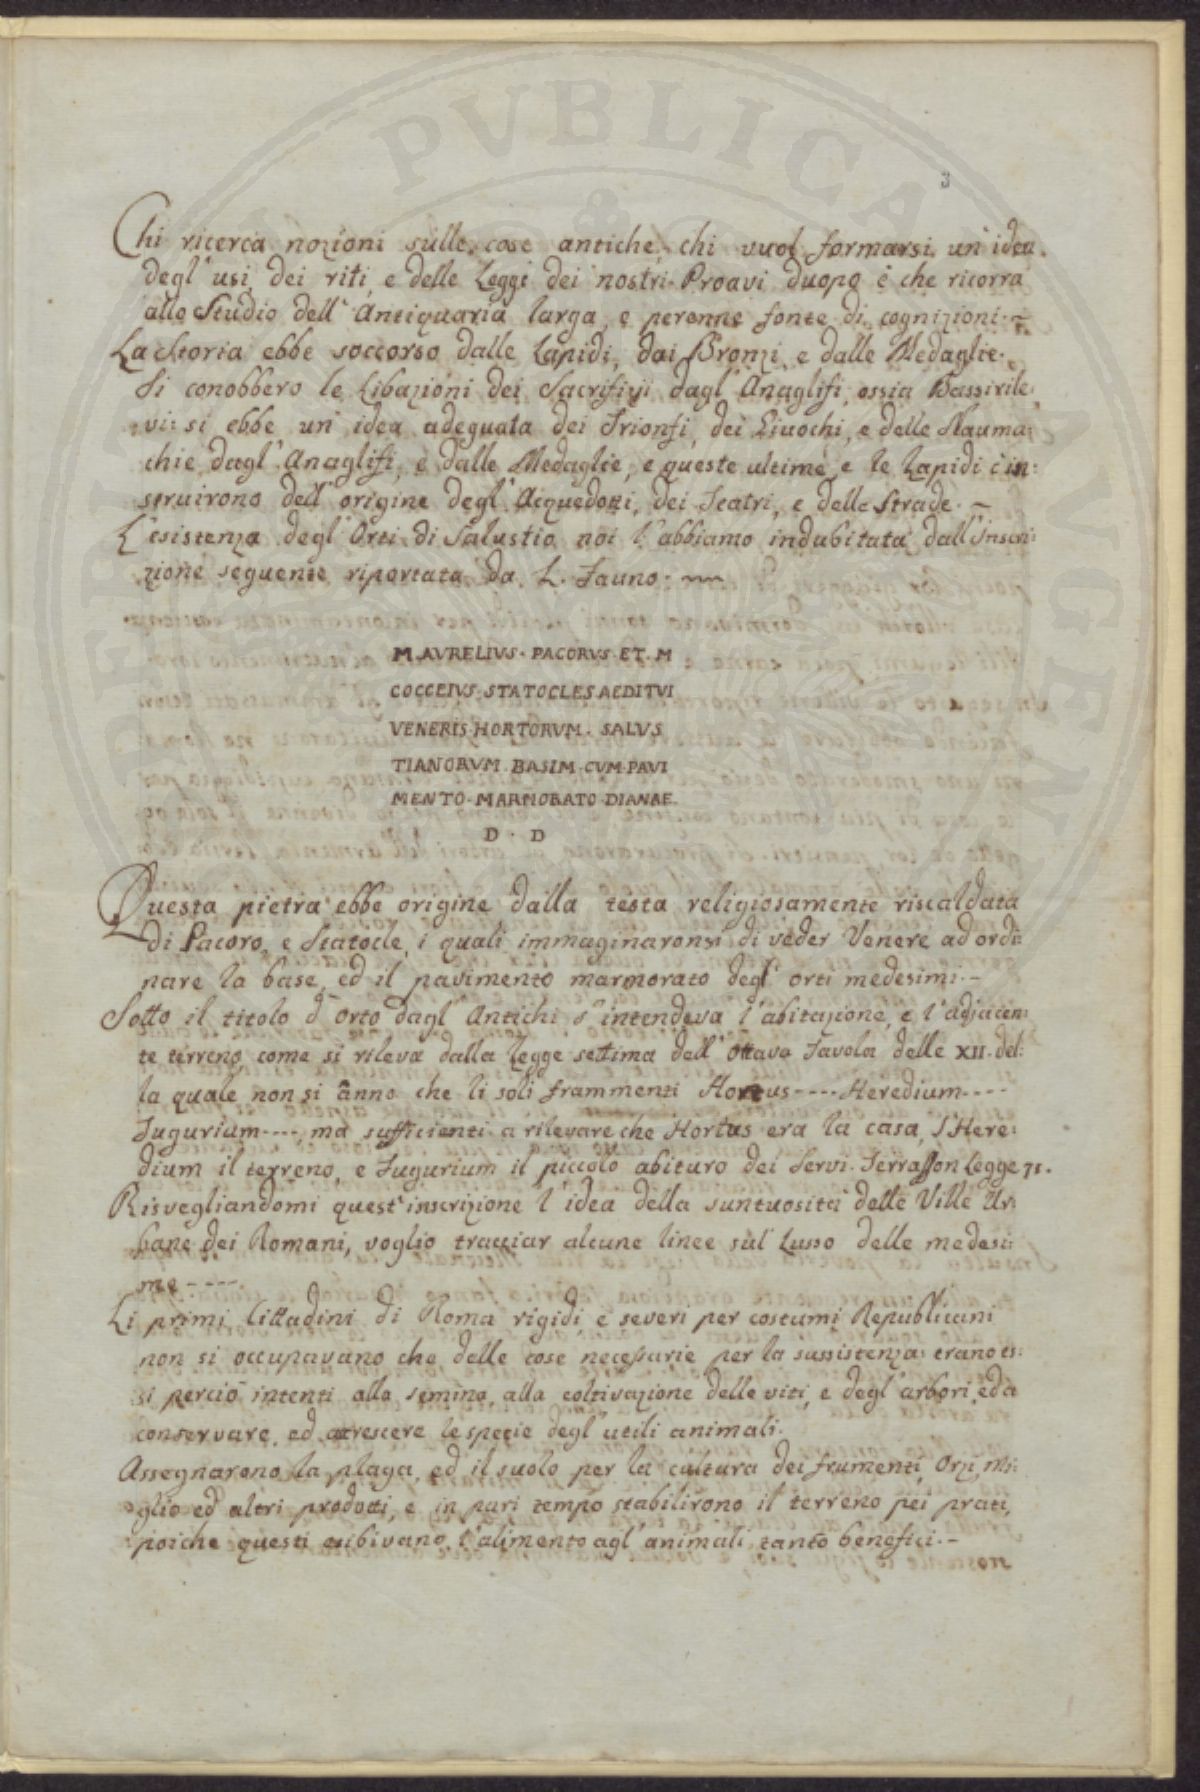 3
Chi ricerca nozioni sulle cose antiche, chi vuol formarsi un'idea
degl'usi, dei riti, e delle Leggi dei nostri Proavi duopo è che ricorra
allo Studio dell'Antiquaria larga, e perenne fonte di cognizioni.~
La Storia ebbe soccorso dalle Lapidi, dai Bronzi, e dalle Medaglie.
Si conobbero le Libazioni dei Sacrifizj dagl'Anaglifi, ossia Bassirile:
vi: si ebbe un'idea adeguata dei Trionfi, dei Giuochi, e delle Nauma:
chie dagl'Anaglifi, e dalle Medaglie, e queste ultime, e le Lapidi c'in:
struirono dell'origine degl'Acquedotti, dei Teatri, e delle Strade. ~
L'esistenza degl'Orti di Salustio noi l'abbiamo indubitata dall'Inscri:
zione seguente riportata da L. Fauno. ~
M. AVRELIVS · PACORVS · ET · M
COCCEIVS · STATOCLES AEDITVI
VENERIS · HORTORVM · SALVS
TIANORVM · BASIM · CVM · PAVI
MENTO · MARMORATO · DIANAE
D · D
Questa pietra ebbe origine dalla testa religiosamente riscaldata
di Pacoro, e Statocle, i quali immaginaronsi di veder Venere ad ordi:
nare la base, ed il pavimento marmorato degl'orti medesimi. ~
Sotto il titolo d'orto dagl'Antichi s'intendeva l'abitazione, e l'adjacen:
te terreno come si rileva dalla legge settima dell'ottava Tavola delle XII. del:
la quale non si ànno che li soli frammenti Hortus---- Heredium----
Tugurium----, ma sufficienti a rilevare che Hortus era la casa, l'Here:
dium il terreno, e Tugurium il piccolo abituro dei Servi. Terrasson Legge 75.
Risvegliandomi quest'inscrizione l'idea della suntuosità delle Ville Ur:
bane dei Romani, voglio tracciar alcune linee sul Lusso delle medesi:
me----.
Li primi Cittadini di Roma rigidi, e severi per costumi Republicani
non si occupavano che delle cose necessarie per la sussistenza: erano es:
si perciò intenti alla semina, alla coltivazione delle viti, e degl'arbori, ed a
conservare, ed accrescere le specie degl'utili animali.
Assegnarono la plaga, ed il suolo per la cultura dei frumenti, Orzi, Mi:
glio ed altri prodotti, e in pari tempo stabilirono il terreno pei prati,
poiche questi esibivano l'alimento agl'animali tanto benefici. ~